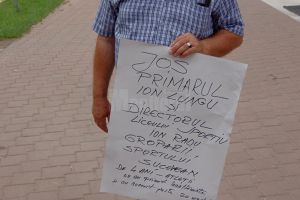 JOS
PRIMARUL
ION LUNGU
ȘI
DIRECTORUL
LICEULUI SPORTIV
ION RADU
GROPARII
SPORTULUI
SUCEVEAN
DE 4 ANI - ATLETII